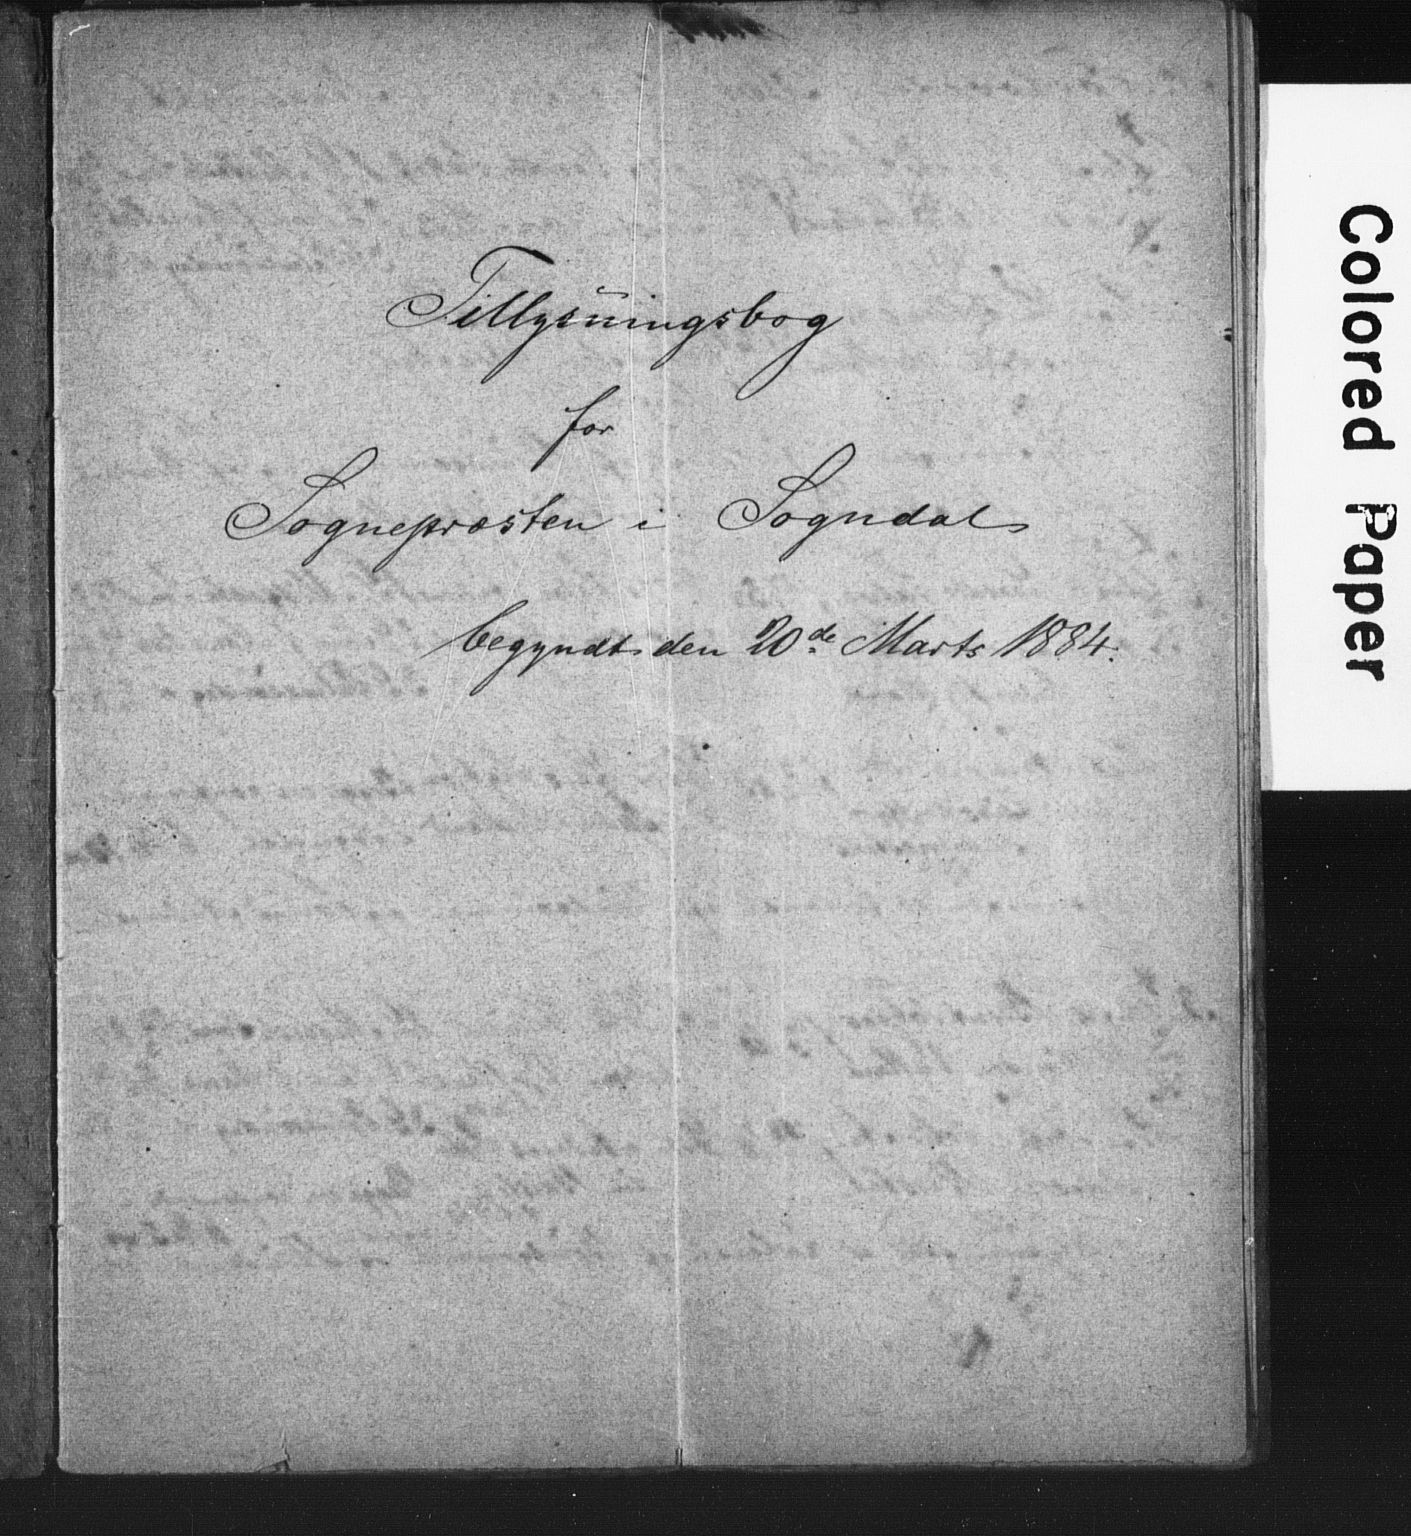 Tillysningsbog
for
Sognepræsten i Sogndal
begyndt den 20de Marts 1884.
Colored Paper